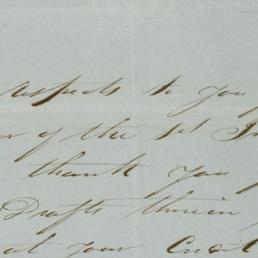 respects to you
of the 1st
thank you
Drafts therein
your